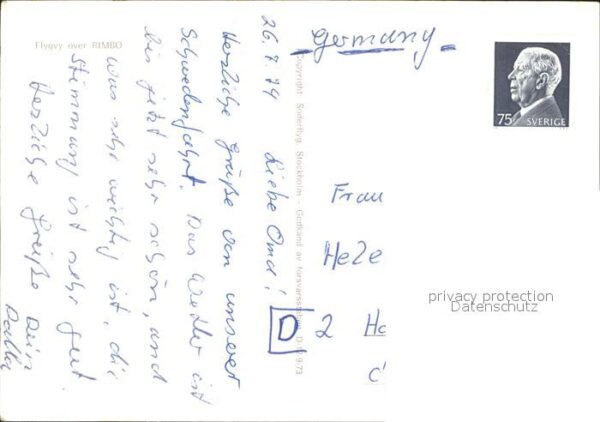 Flygvy över RIMBO
26.7.74
Liebe Oma!
Herzliche Grüße von unserer
Schwedenfahrt. Das Wetter ist
bis jetzt sehr schön, und
was sehr wichtig ist, die
Stimmung ist sehr gut.
Herzliche Grüße Dein
Copyright: Söderflyg, Stockholm - Godkänd av försvarsstaben
9.73
Germany
75 SVERIGE
Frau
Hele
D 2 Ha
privacy protection
Datenschutz